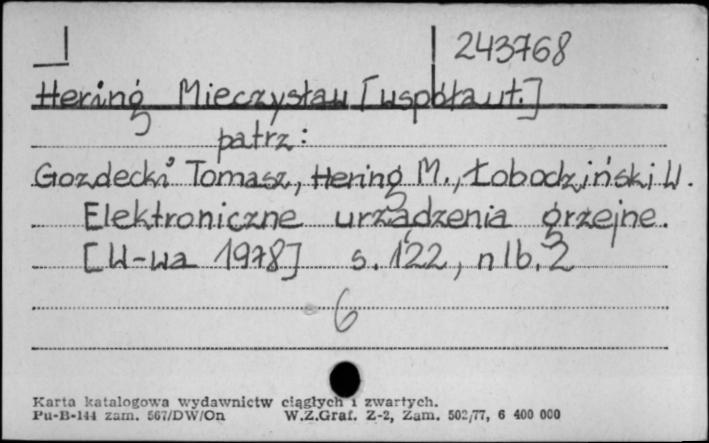 243768
Hering Mieczysław [współaut.]
patrz:
Gozdecki Tomasz, Hering M., Łobodziński W.
Elektroniczne urządzenia grzejne.
[W-wa 1978] s. 122, nlb. 2
6
Karta katalogowa wydawnictw ciągłych i zwartych.
Pu-B-144 zam. 567/DW/On W.Z.Graf. Z-2, Zam. 502/77, 6 400 000